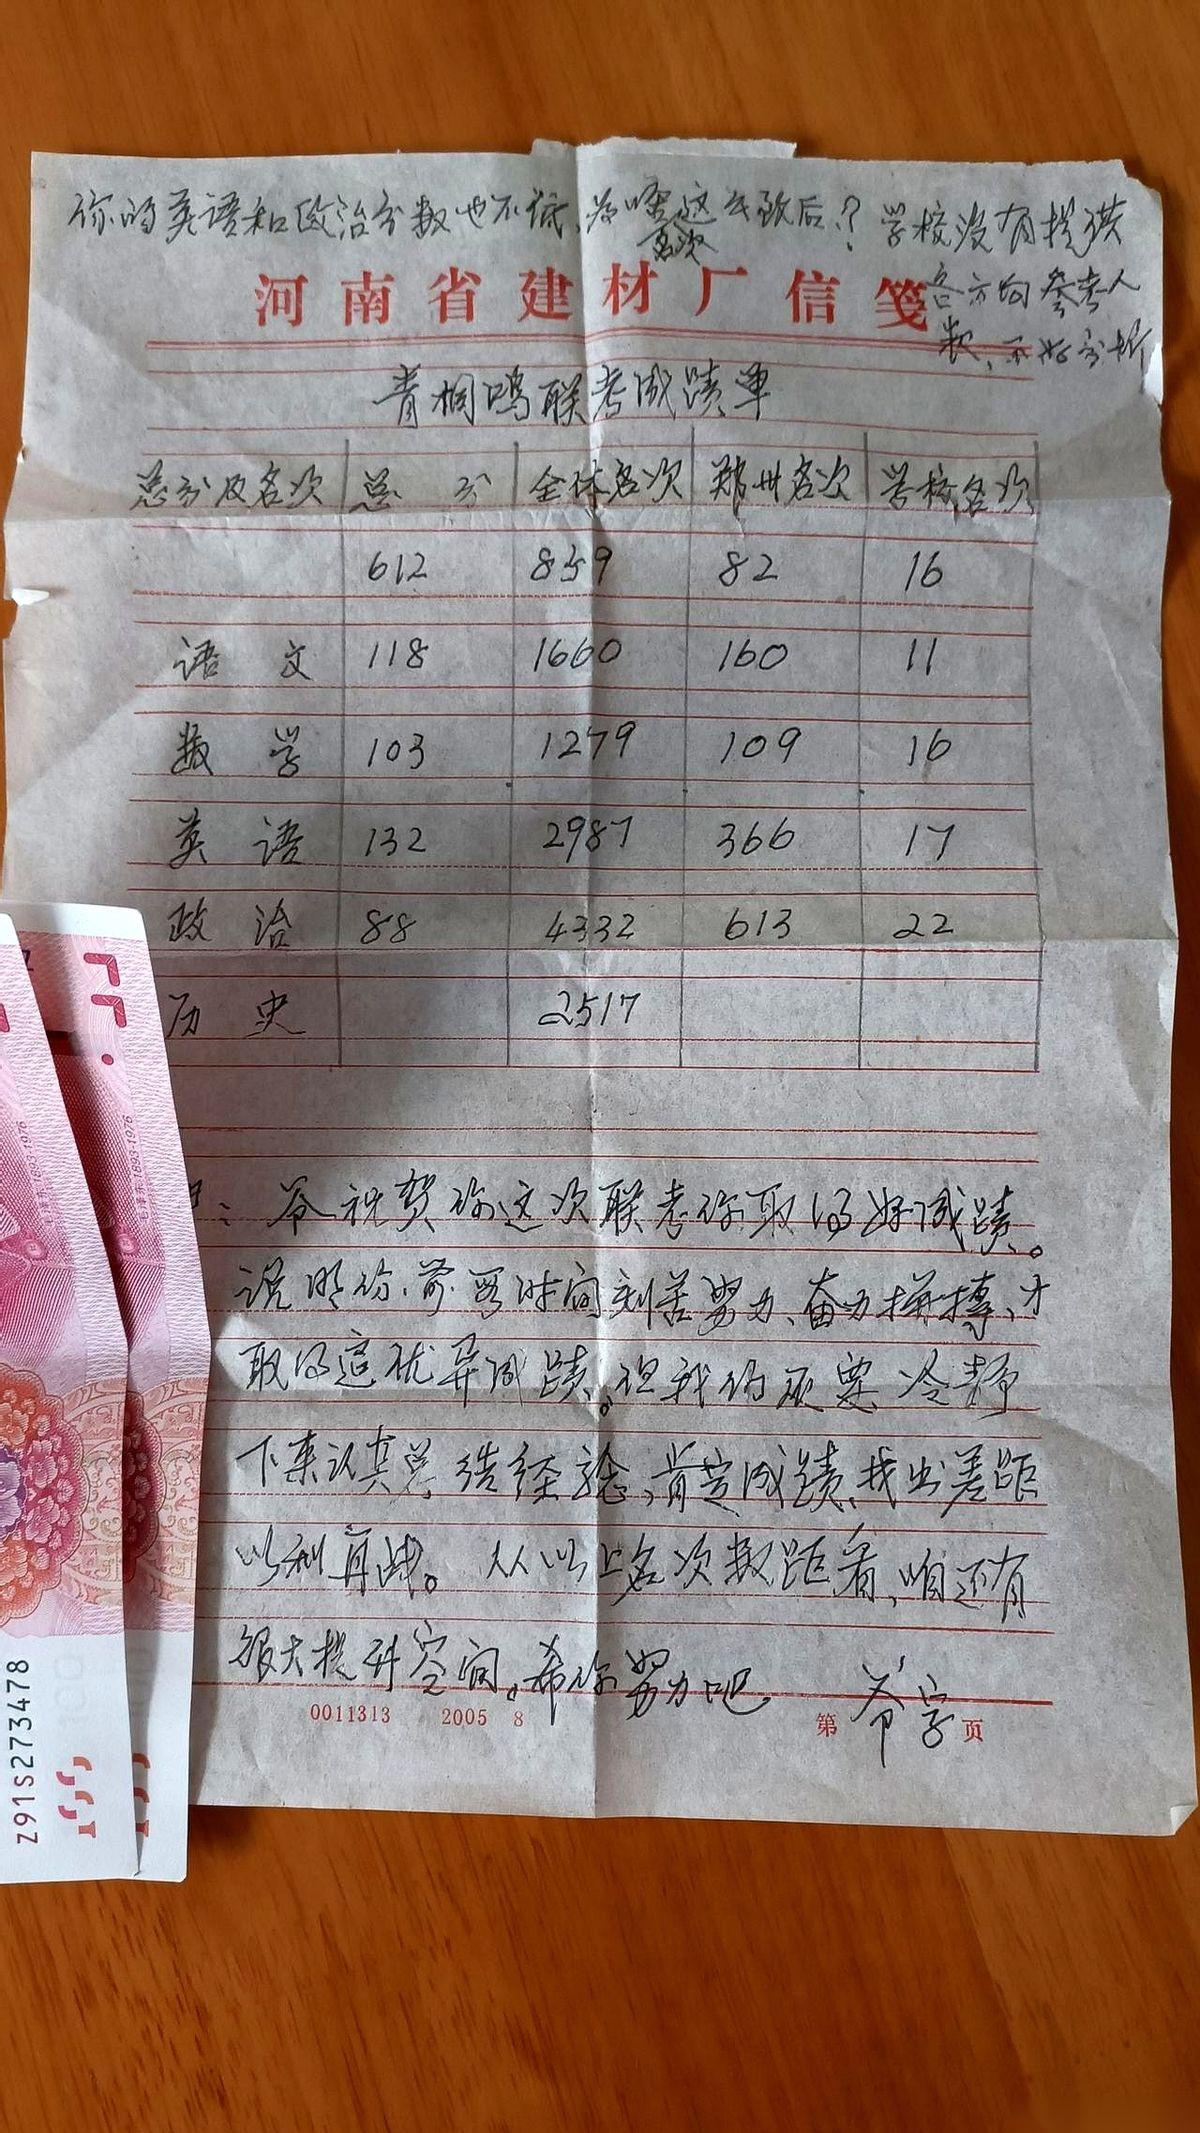 你的英语和政治分数也不低、为啥这么致后？学校没有提供
名次
各方向参考人
数、不好分析
河南省建材厂信笺
青桐鸣联考成蹟单
总分及名次 总分 全体名次 郑州名次 学校名次
612 859 82 16
语文 118 1660 160 11
数学 103 1279 109 16
英语 132 2987 366 17
政治 88 4332 613 22
历史 2517
：爷祝贺你这次联考你取得好成蹟。
说明你、前署时间刻苦努力、奋力拼搏、才
取得这优异成蹟。但我们还要冷静
下来认真总结经验，肯定成蹟、找出差距
以利再战。从以上名次数距看，咱还有
很大提升空间。希你努力吧。
爷字
0011313 2005 8
第 页
1893-1976
1893-1976
Z91S273478